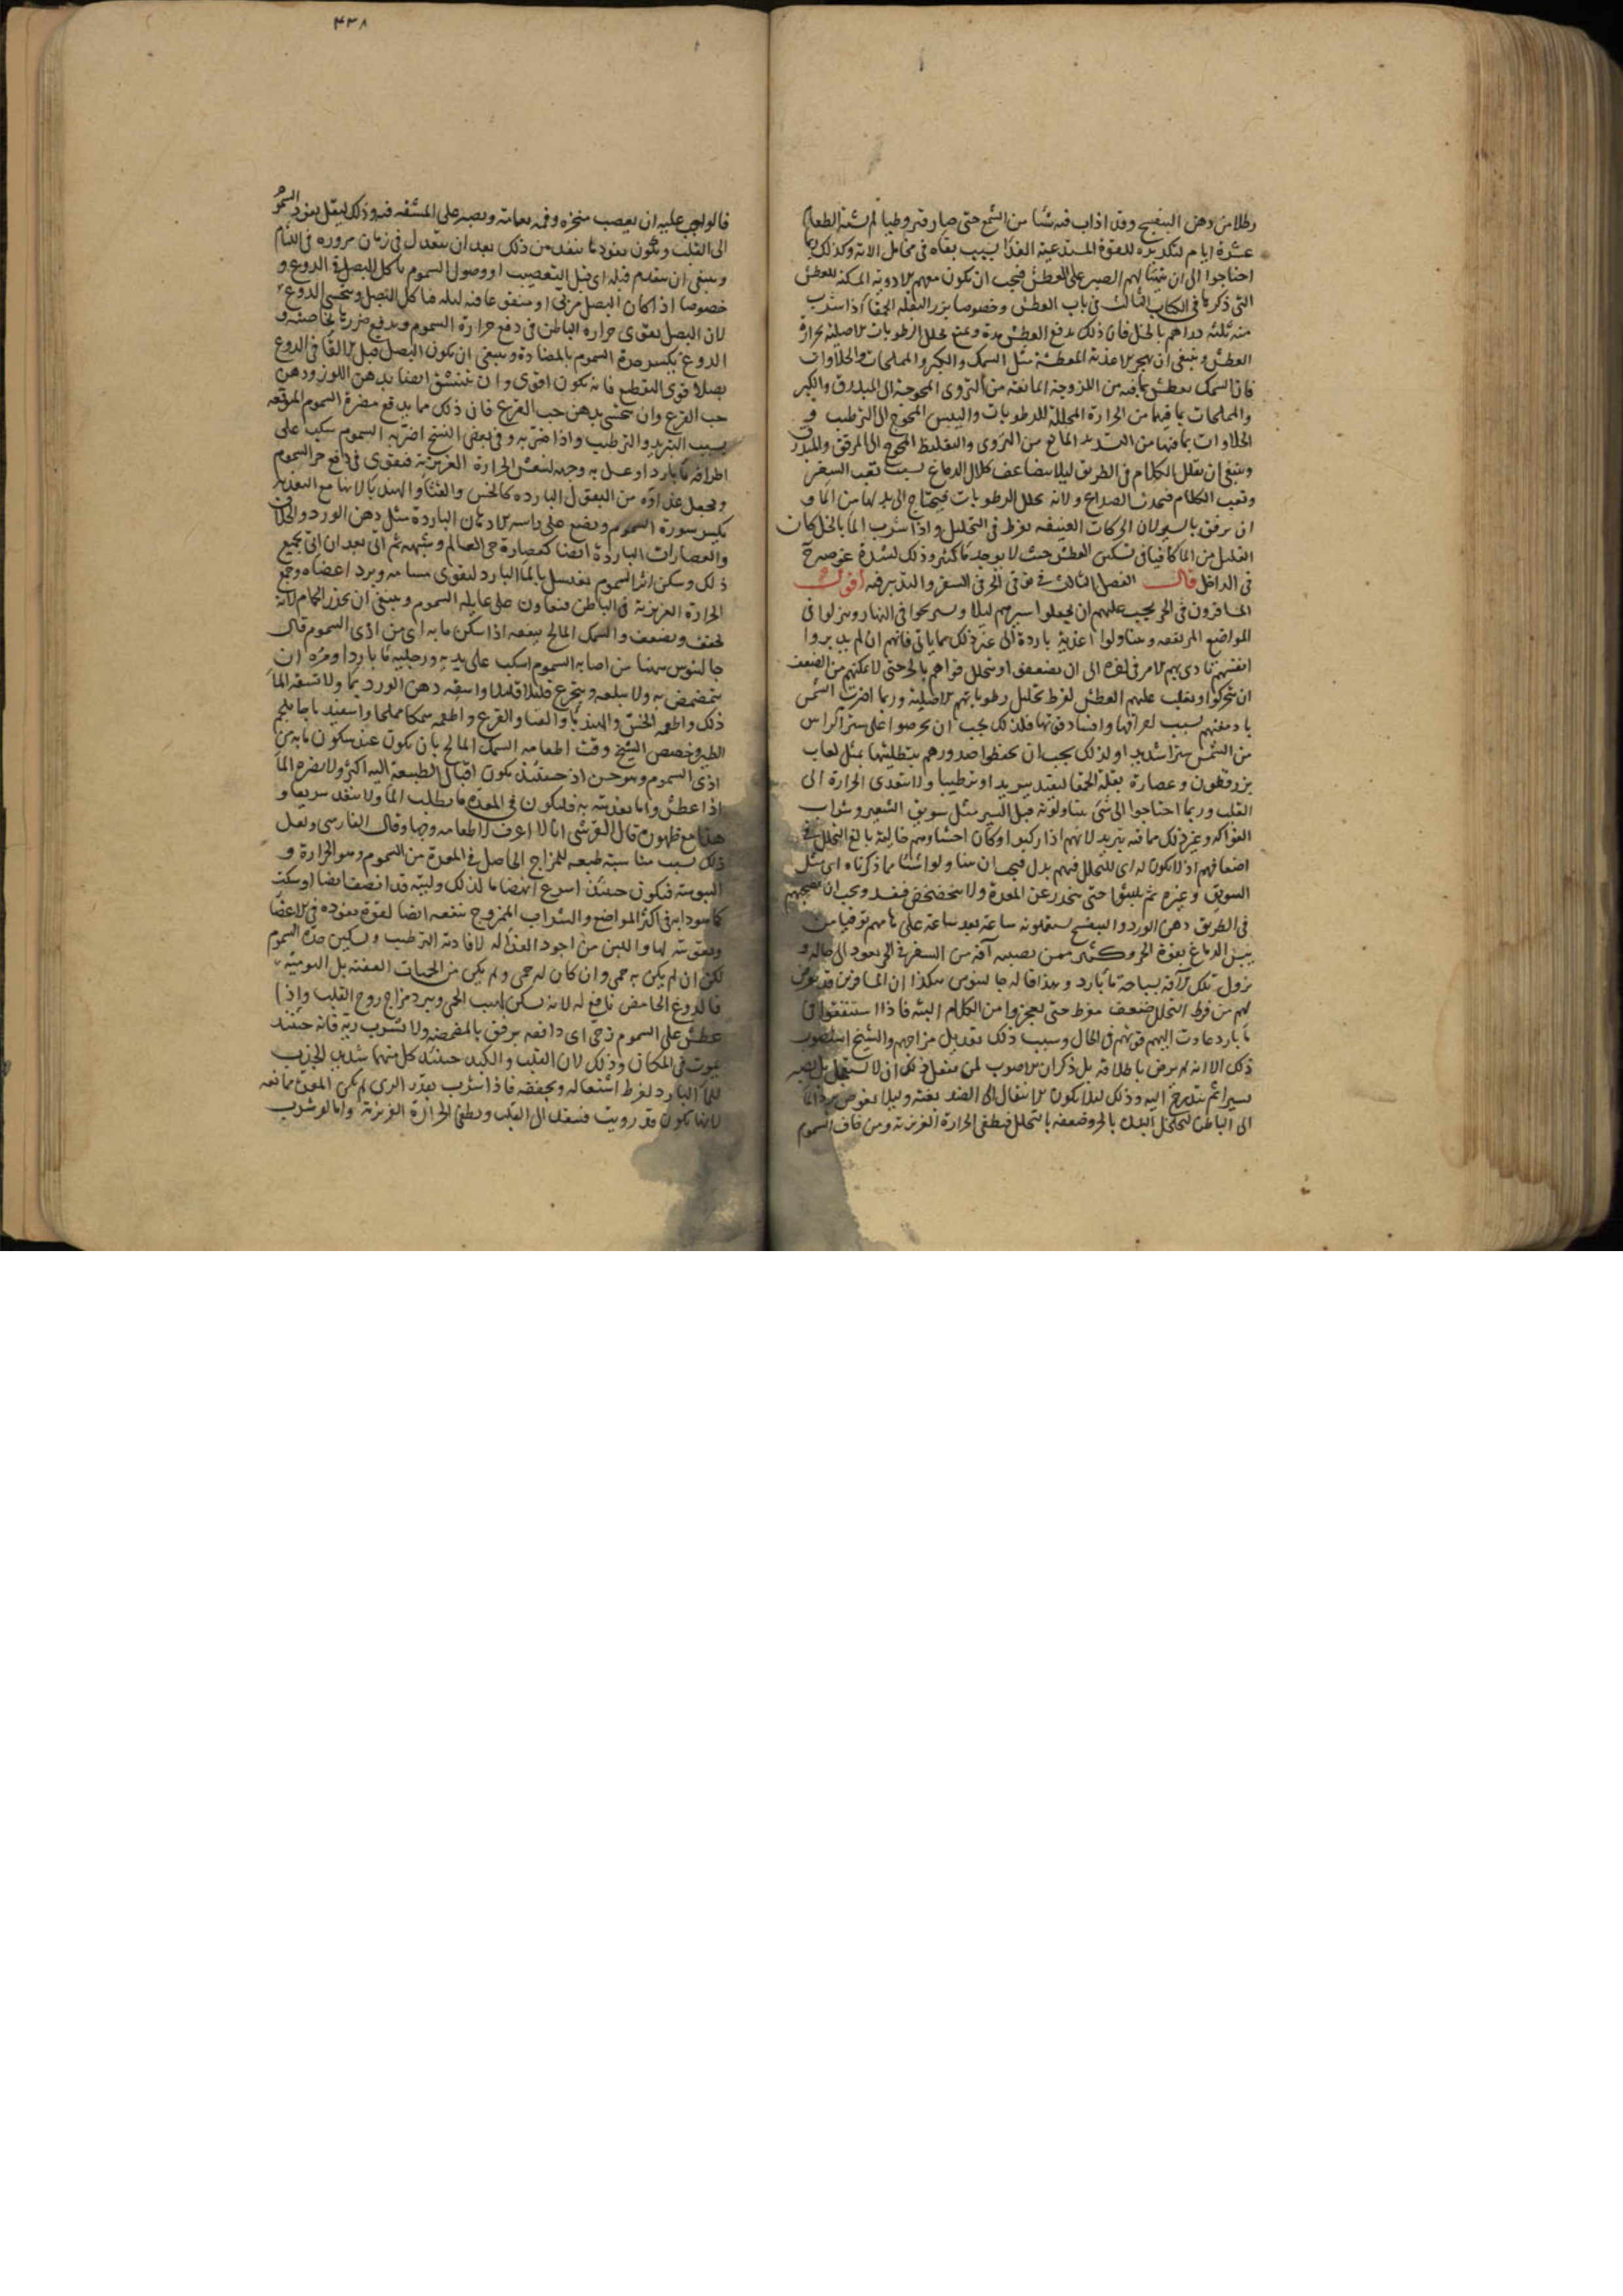 رطلا من دهن البنفسج وقد اذاب فيه شيئا من الشمع حتى صار قيروطيا لم يشته الطعام
عشرة ايام لتكديره للقوة المستدعية للغذا بسبب بقاه في مخامل الاته وكذلك ربما
احتاجوا الى ان يتهيا لهم الصبر على العطش فيجب ان يكون معهم الادوية المسكنة للعطش
التي ذكرنا في الكتاب الثالث في باب العطش وخصوصا بزر البقلة الحمقا اذا شرب
منه ثلثة دراهم بالخل فان ذلك يدفع العطش مدة ويمنع تحلل الرطوبات الاصلية بحرارة
العطش وينبغي ان يهجر الاغذية المعطشة مثل السمك والكبر والمملحات والحلاوات
فان السمك يعطش بما فيه من اللزوجة المانعة من التروي المحوجة الى المبدرق والكبر
والمملحات بما فيها من الحرارة المحللة للرطوبات واليبس المحوج الى الترطيب و
الحلاوات بما فيها من التسديد المانع من التروي والتغليظ المحوج الى المرقق والمبدرق
وينبغي ان يقلل الكلام في الطريق ليلا يتضاعف كلال الدماغ بسبب تعب السفر
وتعب الكلام فيحدث الصداع ولانه يحلل الرطوبات فيحتاج الى بدلها من الما و
ان يرفق بالسير لان الحركات العنيفة يفرط في التحليل واذا شرب الما بالخل كان
القليل من الما كافيا في تسكين العطش حيث لا يوجد ما كثير وذلك لشدة غوصه
في الداخل قال الفصل الثالث في توقي الحر في السفر والتدبير فيه اقول
المسافرون في الحر يجب عليهم ان يجعلوا سيرهم ليلا ويستريحوا في النهار وينزلوا في
المواضع المرتفعة ويتناولوا اغذية باردة الى غير ذلك مما ياتي فانهم ان لم يدبروا
انفسهم تادى بهم الامر في اخره الى ان يضعفوا ويتحلل قواهم بالحر حتى لا يمكنهم من الضعف
ان يتحركوا ويغلب عليهم العطش لفرط تحليل رطوباتهم الاصلية وربما اضرت الشمس
بادمغتهم بسبب احراقها وافسادها فلذلك يجب ان يحرصوا على ستر الراس
من الشمس سترا شديدا ولذلك يجب ان يحفظوا صدورهم بتطليتها بمثل لعاب
بزر قطونا وعصارة بقلة الحمقا ليفيد تبريدا وترطيبا ولا يتعدى الحرارة الى
القلب وربما احتاجوا الى شئ يتناولونه قبل السير مثل سويق الشعير وشراب
الفواكه وغير ذلك مما فيه تبريد لانهم اذا ركبوا وكان احشاوهم خالية بالغ التحلل في
اضعافهم اذ لا يكون له اي للتحلل فيهم بدل فيجب ان يتناولوا شيئا مما ذكرناه اي مثل
السويق وغيره ثم يلبثوا حتى ينحدر عن المعدة ولا يتخضخض فيفسد ويجب ان يصحبهم
في الطريق دهن الورد والبنفسج يستعملونه ساعة بعد ساعة على هامهم توقيا من
يبس الدماغ بقوة الحر وكثير ممن يصيبه آفة من السفر في الحر يعود الى حاله و
يزول تلك الآفة بسباحة ما بارد وهذا قاله جالينوس هكذا ان المسافرين قد يعرض
لهم من فرط التحلل ضعف مفرط حتى يعجزوا من الكلام البتة فاذا استنقعوا في
ما بارد عادت اليهم قوتهم في الحال وسبب ذلك تعديل مزاجهم والشيخ استصوب
ذلك الا انه لم يرض باطلاقه بل ذكر ان الاصوب لمن يفعل ذلك ان لا يستعجل بل يصبر
يسيرا ثم يتدرج اليه وذلك ليلا يكون الانتقال الى الضد بغتة وليلا يغوص برد الما
الى الباطن لتخلخل البدن بالحر وضعفه بالتحلل فيطفي الحرارة الغريزية ومن خاف السموم
قالوا يجب عليه ان يعصب منخره وفمه بعمامة ويصبر على المشقة فيه وذلك ليقل نفوذ السموم
الى القلب ويكون نفوذ ما ينفذ من ذلك بعد ان يتعدل في زمان مروره في اللثام
وينبغي ان يتقدم قبله اي قبل التعصيب او وصول السموم باكل البصل في الدوغ و
خصوصا اذا كان البصل مربى او منقوعا فيه ليلة فياكل البصل ويتحسى الدوغ
لان البصل يقوى حرارة الباطن في دفع حرارة السموم ويدفع ضررها بخاصيته و
الدوغ يكسر حدة السموم بالمضادة وينبغي ان يكون البصل قبل الالقا في الدوغ
بصلا قوي التقطيع فانه يكون اقوى وان يتنشق ايضا بدهن اللوز ودهن
حب القرع وان يتحسى بدهن حب القرع فان ذلك مما يدفع مضرة السموم المتوقعة
بسبب التبريد والترطيب واذا ضربه وفي بعض النسخ اضر به السموم سكب على
اطرافه ما بارد او غسل به وجهه لتنعش الحرارة الغريزية فيقوى في دفع حر السموم
ويجعل غذاؤه من البقول الباردة كالخس والقثا والهندبا لانها مع التغذية
يكسر سورة السموم ويضع على راسه الادهان الباردة مثل دهن الورد والخلاف
والعصارات الباردة ايضا كعصارة حي العالم وشبهه ثم الى بعد ان اتى بجميع
ذلك وسكن اثر السموم يغتسل بالما البارد ليقوى مسامه ويبرد اعضاه ويجمع
الحرارة الغريزية في الباطن فيعاون على غايلة السموم وينبغي ان يحذر الحمام لانه
يجفف ويضعف والسمك المالح ينفعه اذا سكن ما به اي من اذى السموم قال
جالينوس مهما من اصابه السموم اسكب على يديه ورجليه ما باردا ومره ان
يتمضمض به ولا يبلعه ويتجرع قليلا قليلا واسقه دهن الورد بما ولا تسقه الما
ذلك واطعمه الخس والهندبا والقثا والقرع واطعمه سمكا مملحا واسفيدباجا بلحم
الطير وخصص الشيخ وقت اطعامه السمك المالح بان يكون عند سكون ما به من
اذى السموم وهو حسن اذ حينئذ يكون اقبال الطبيعة اليه اكثر ولا يضره الما
اذا عطش واما تغذيته به فليكون في المعدة ما يطلب الما ولا ينفذ سريعا و
هذا مع ظهوره قال القرشي انا لا اعرف لاطعامه وجها وقال الفارسي ولعل
ذلك بسبب مناسبة طبيعة للمزاج الحاصل في المعدة من السموم وهو الحرارة و
اليبوسة فيكون حينئذ اسرع انهضاما لذلك وليته قد انصف ايضا او سكت
كما هو دابه في اكثر المواضع والشراب الممزوج ينفعه ايضا لقوة نفوذه في الاعضا
وتقويته لها واللبن من اجود الغذا له لافادته الترطيب وتسكين حدة السموم
لكن ان لم يكن به حمى وان كان له حمى ولم يكن من الحميات العفنة بل اليومية
فالدوغ الحامض نافع له لانه يسكن لهيب الحمى ويبرد مزاج روح القلب واذا
عطش على السموم زجى اي دافعه برفق بالمضمضة ولا يشرب ريه فانه حينئذ
يموت في المكان وذلك لان القلب والكبد حينئذ كل منهما شديد الجذب
للما البارد لفرط اشتعاله وتجففه فاذا شرب بقدر الري لم يكن المعدة ممانعه
لانها تكون قد رويت فينفذ الى القلب ويطفي الحرارة الغريزية واما لو شرب
٤٣٨